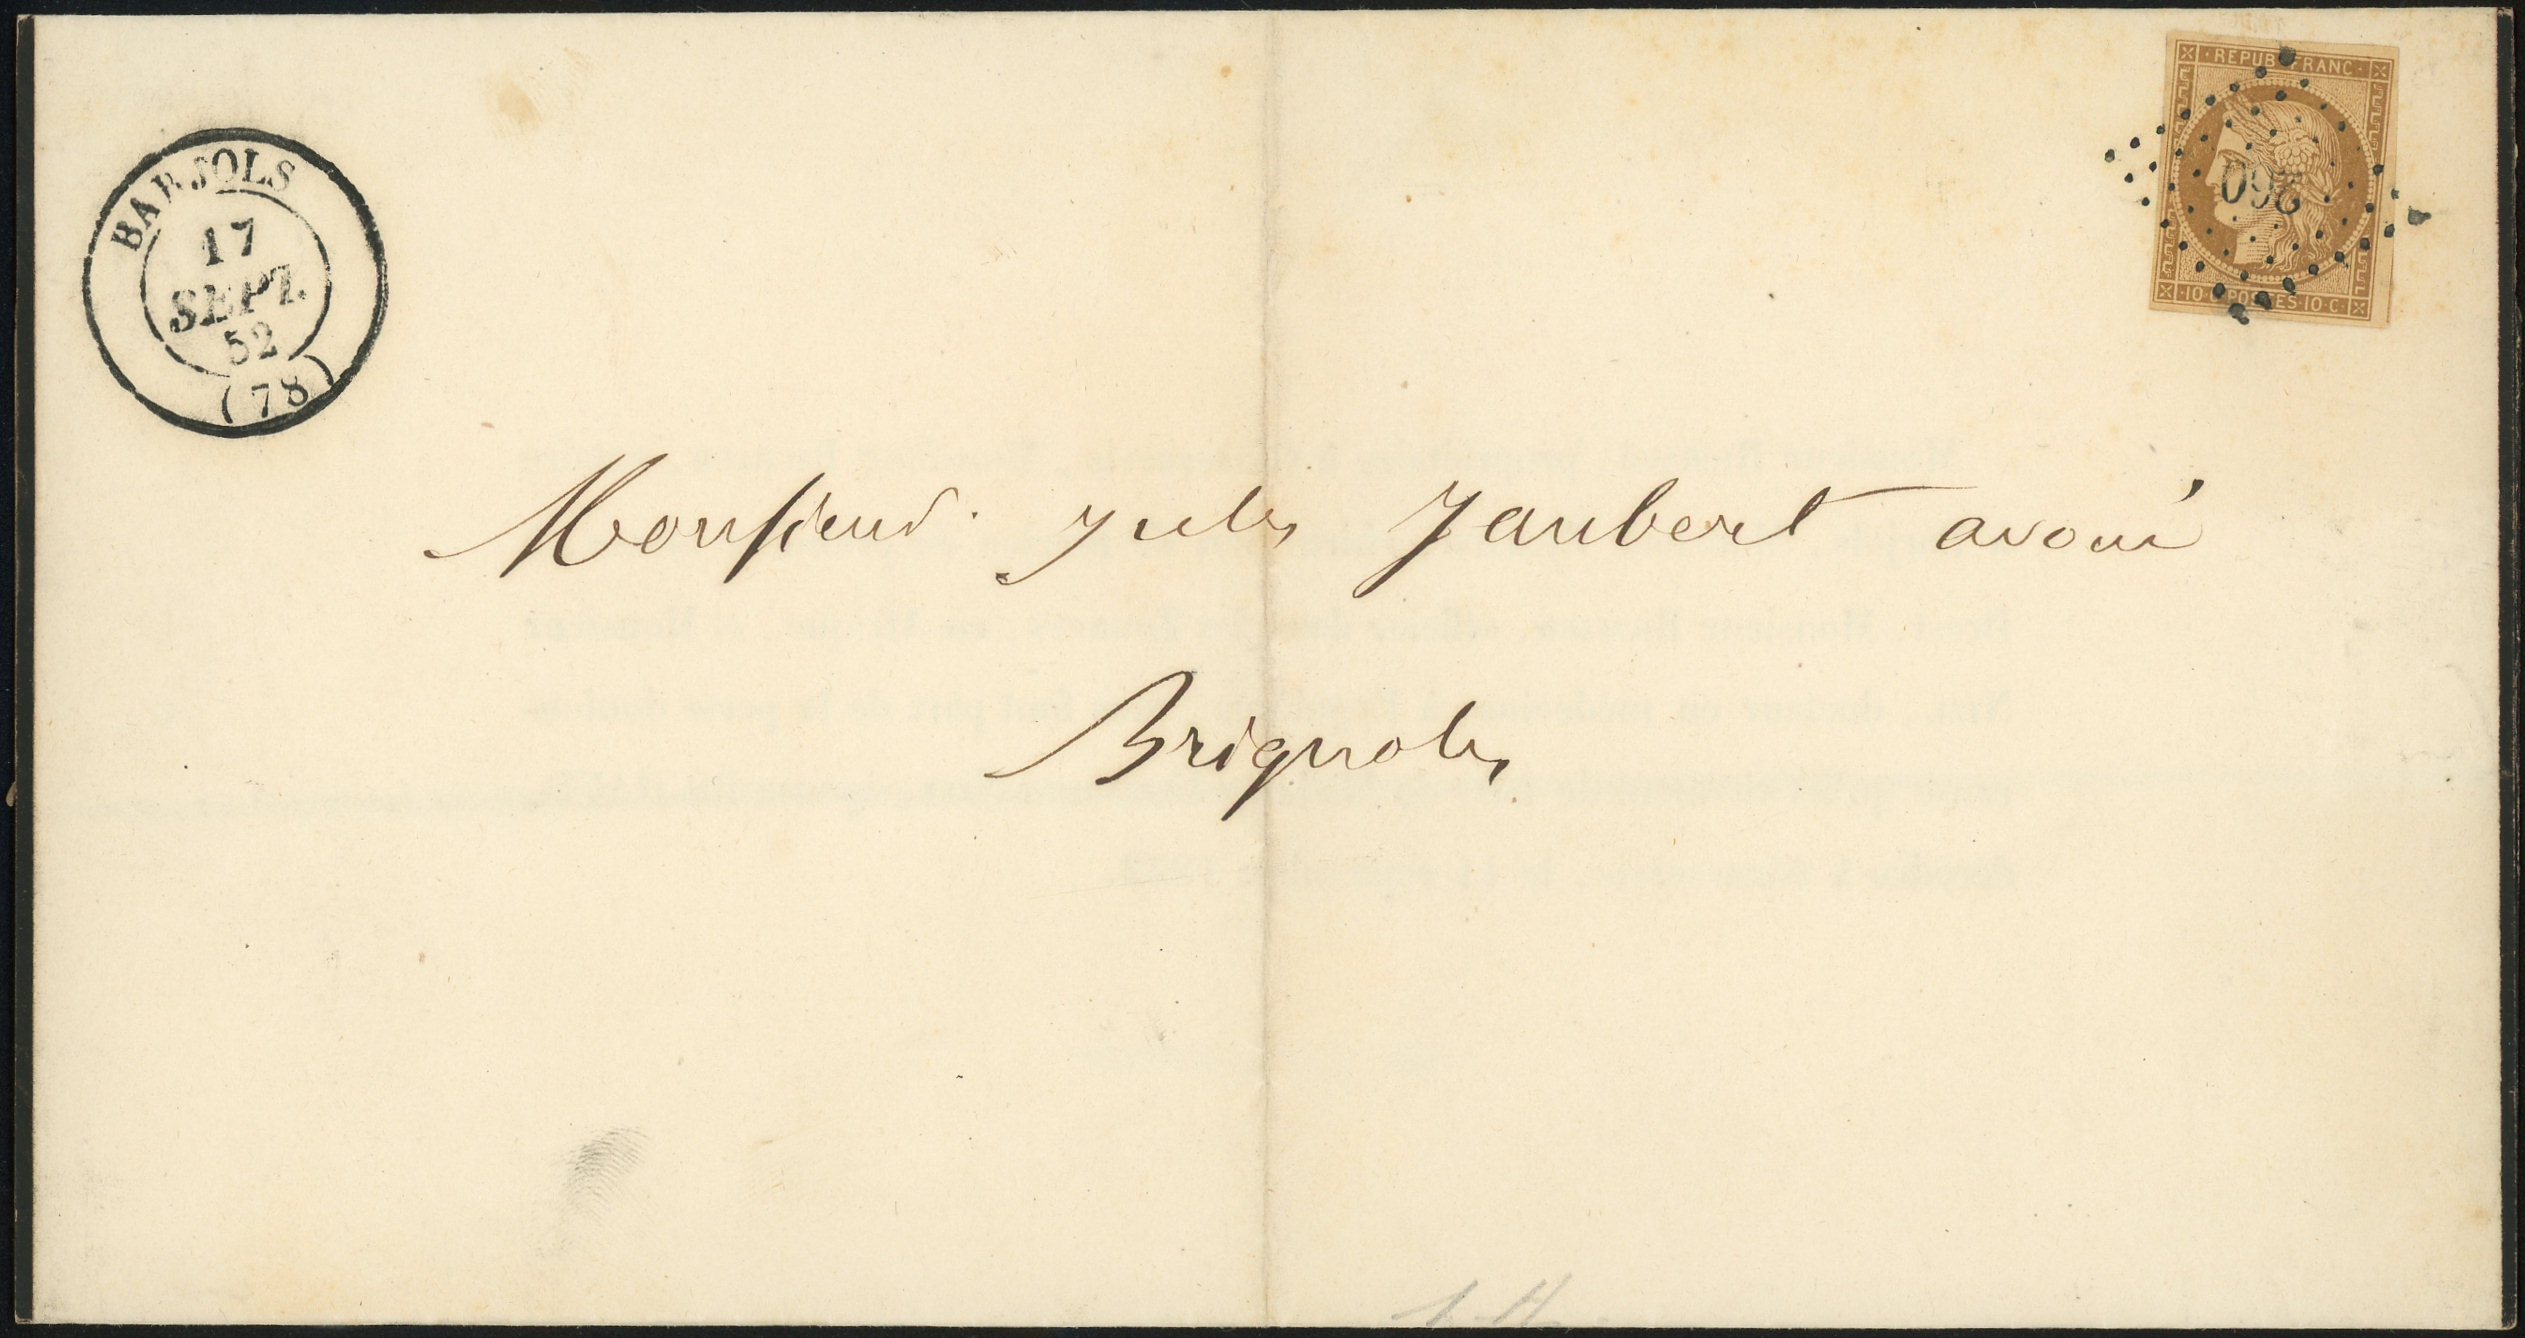 BARJOLS
17
SEPT.
52
(78)
REPUB FRANC
260
10 C POSTES 10 C
Monsieur Jules Jaubert avoué
Brignoles